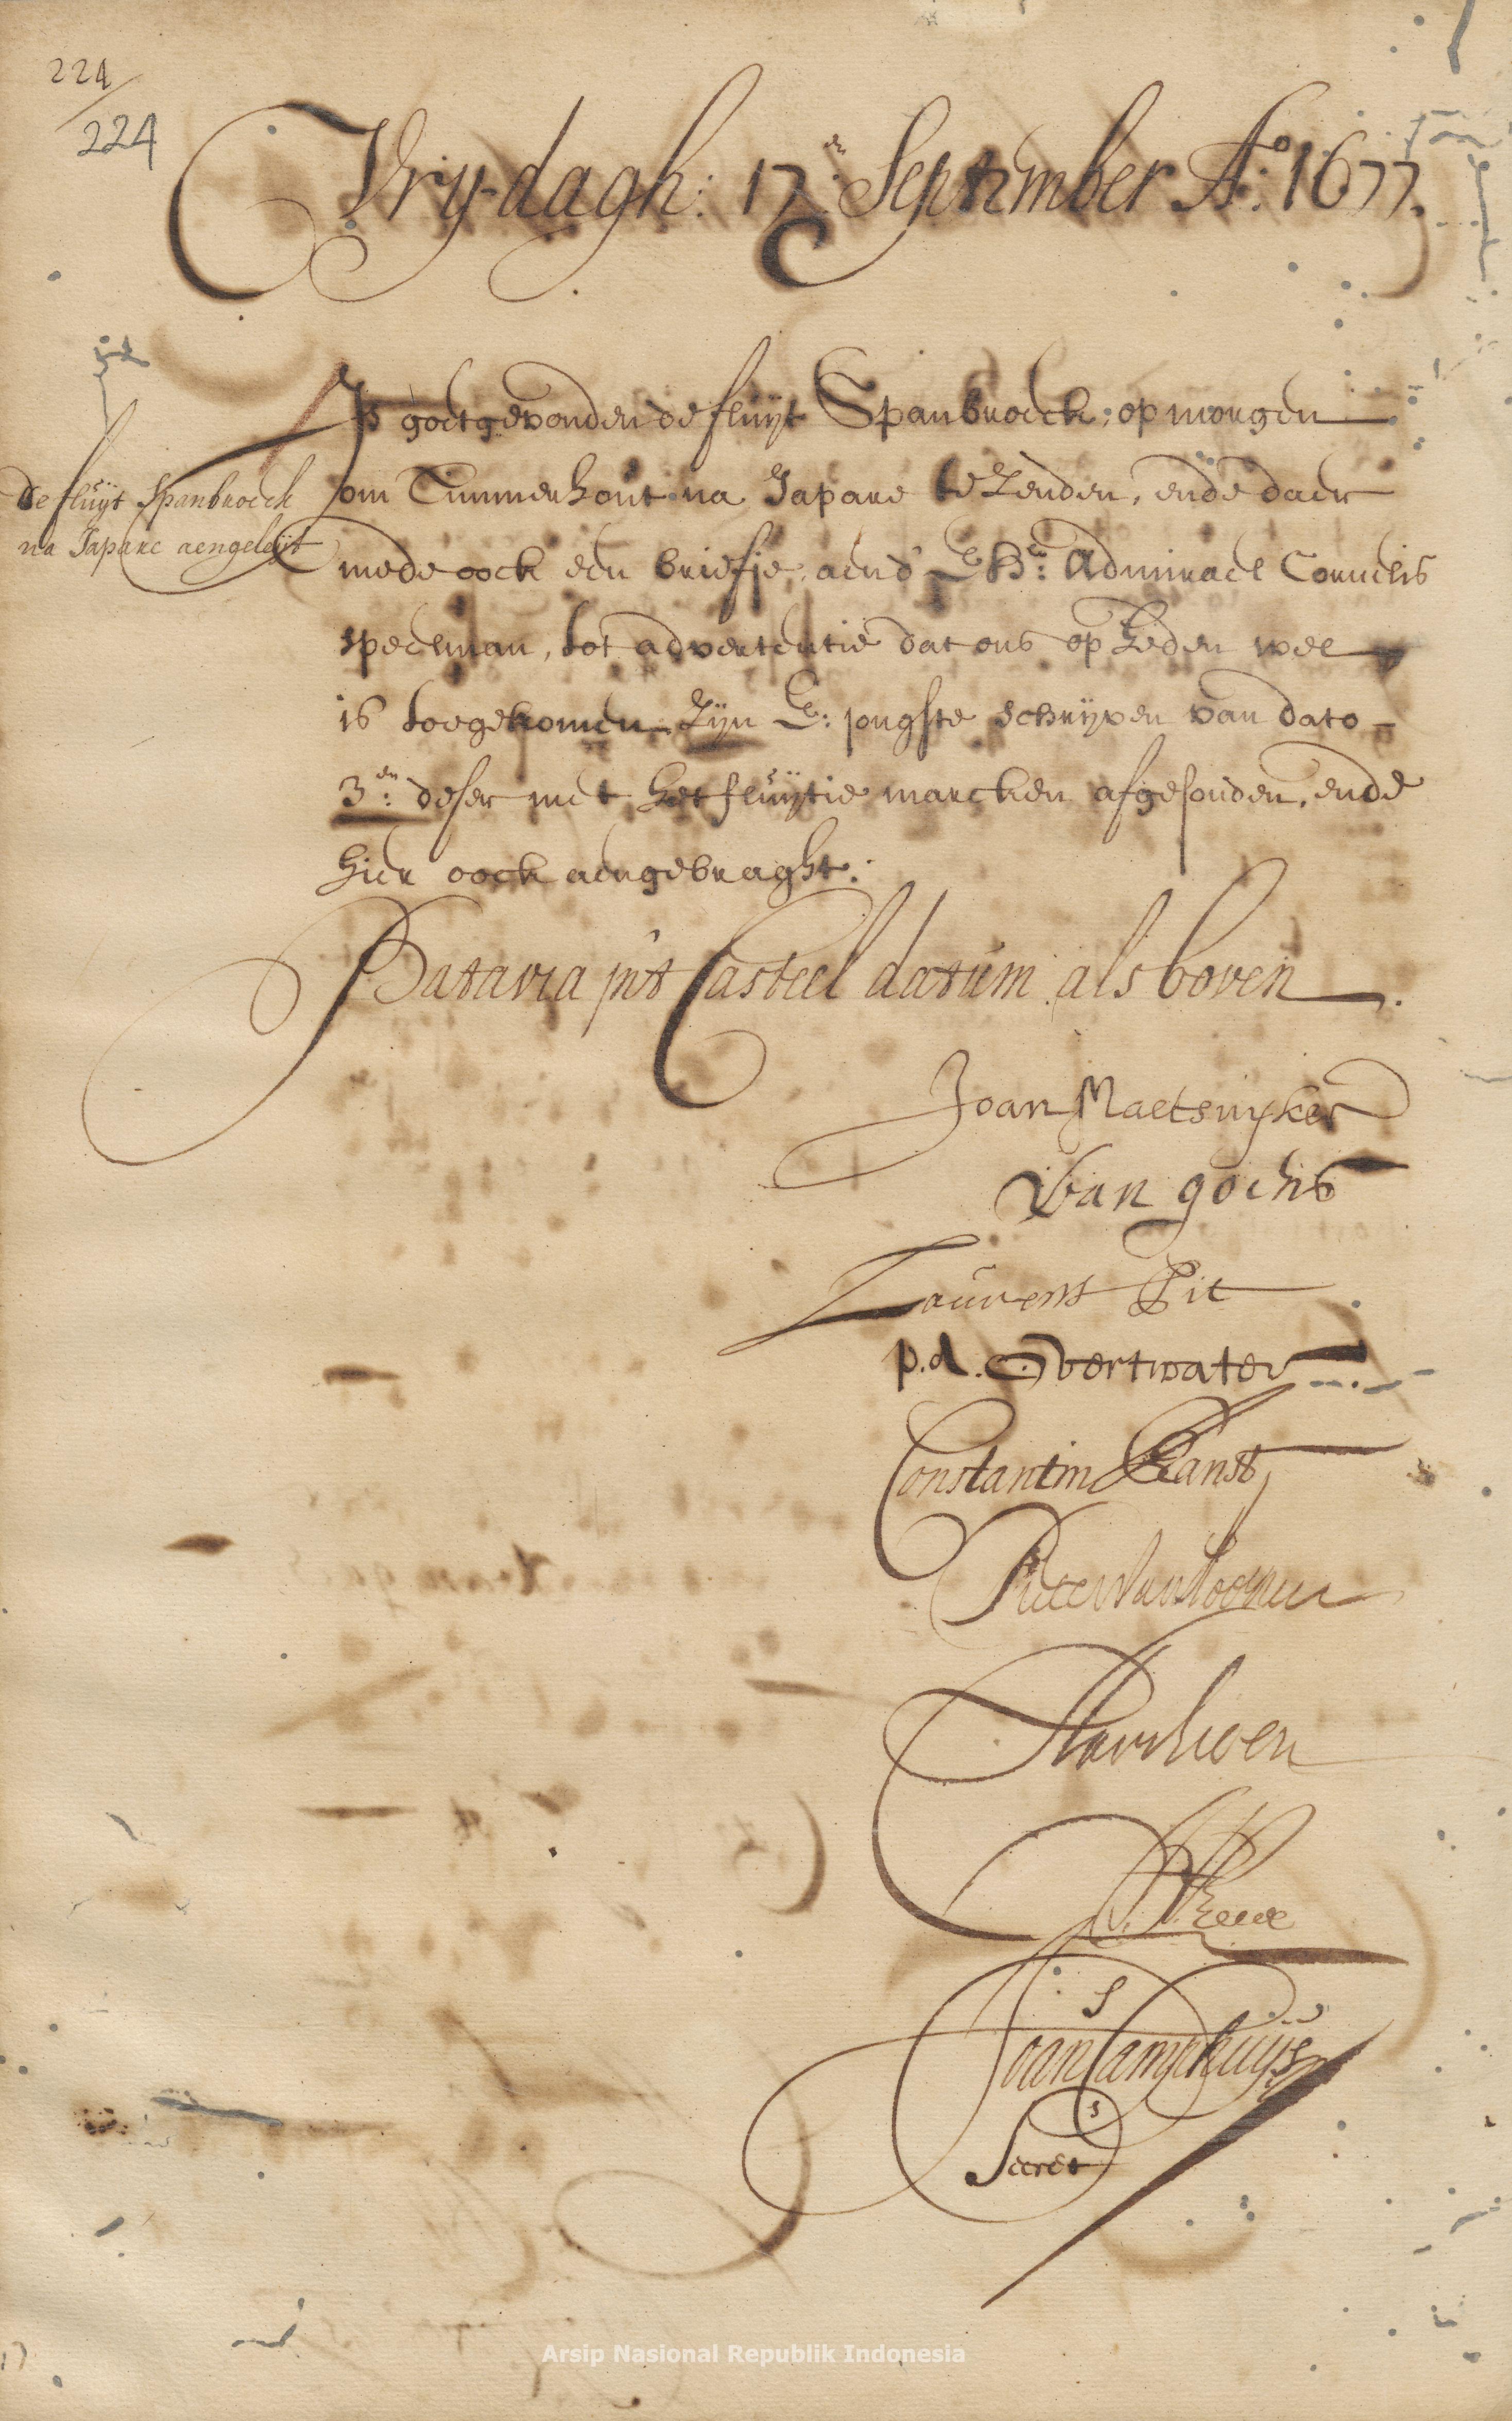 224
224
Vrydagh: 17en: September Ao: 1677.
Is goetgevonden de fluyt Spanbroeck, op morgen
de fluijt Spanbroeck
na Japare aengeleijt
om Timmerhout na Japare te zenden, ende daer
mede oock een briefje aend' E Hr: Admirael Cornelis
Speelman, tot advertentie dat ons op heden wel
is toegekomen zijn E: jongste schrijven van dato
3en: deser met het fluijtie marcken afgesonden, ende
hier oock aengebraght:
Batavia int Casteel datum als boven
Joan Maetsuyker
Van goens
Laurens Pit
p.a. Overtwater
Constantin Ranst
Pieter van Hoorn
Joan Camphuys
Secret
Arsip Nasional Republik Indonesia